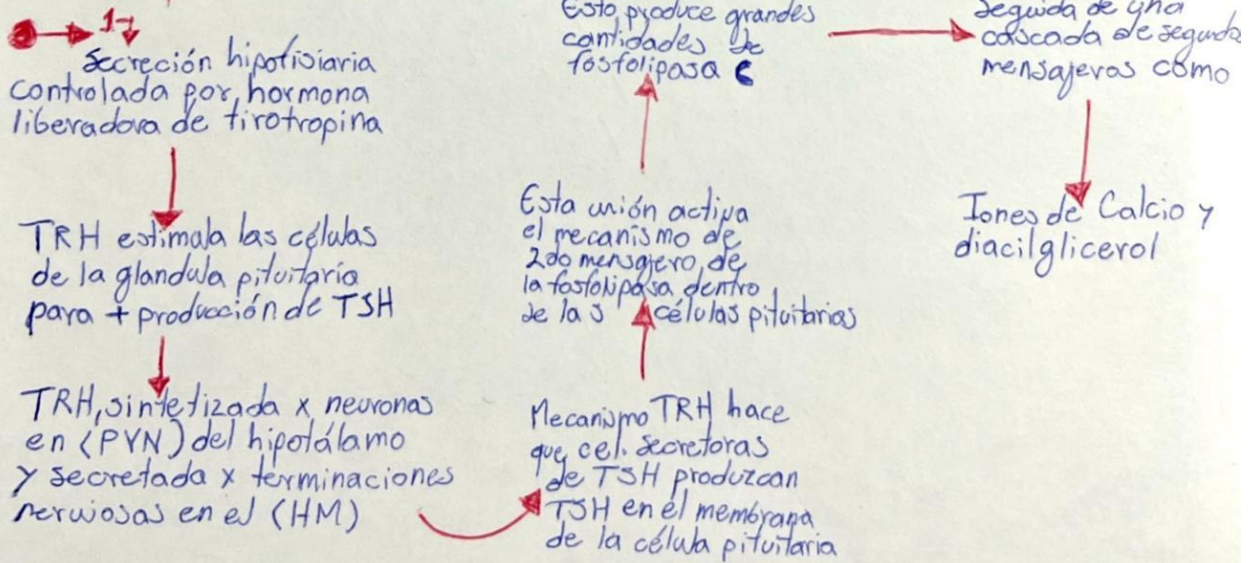 1-
Secreción hipofisiaria
controlada por hormona
liberadora de tirotropina
TRH estimala las células
de la glandula pituitaria
para + producción de TSH
TRH, sintetizada x neuronas
en (PVN) del hipotálamo
y secretada x terminaciones
nerviosas en el (HM)
Mecanismo TRH hace
que cel. secretoras
de TSH produzcan
TSH en el membrana
de la célula pituitaria
Esta unión activa
el mecanismo de
2do mensajero de
la fosfolipasa dentro
de la s células pituitarias
Esto produce grandes
cantidades de
fosfolipasa C
Seguida de una
cascada de segundos
mensajeros como
Iones de Calcio y
diacilglicerol